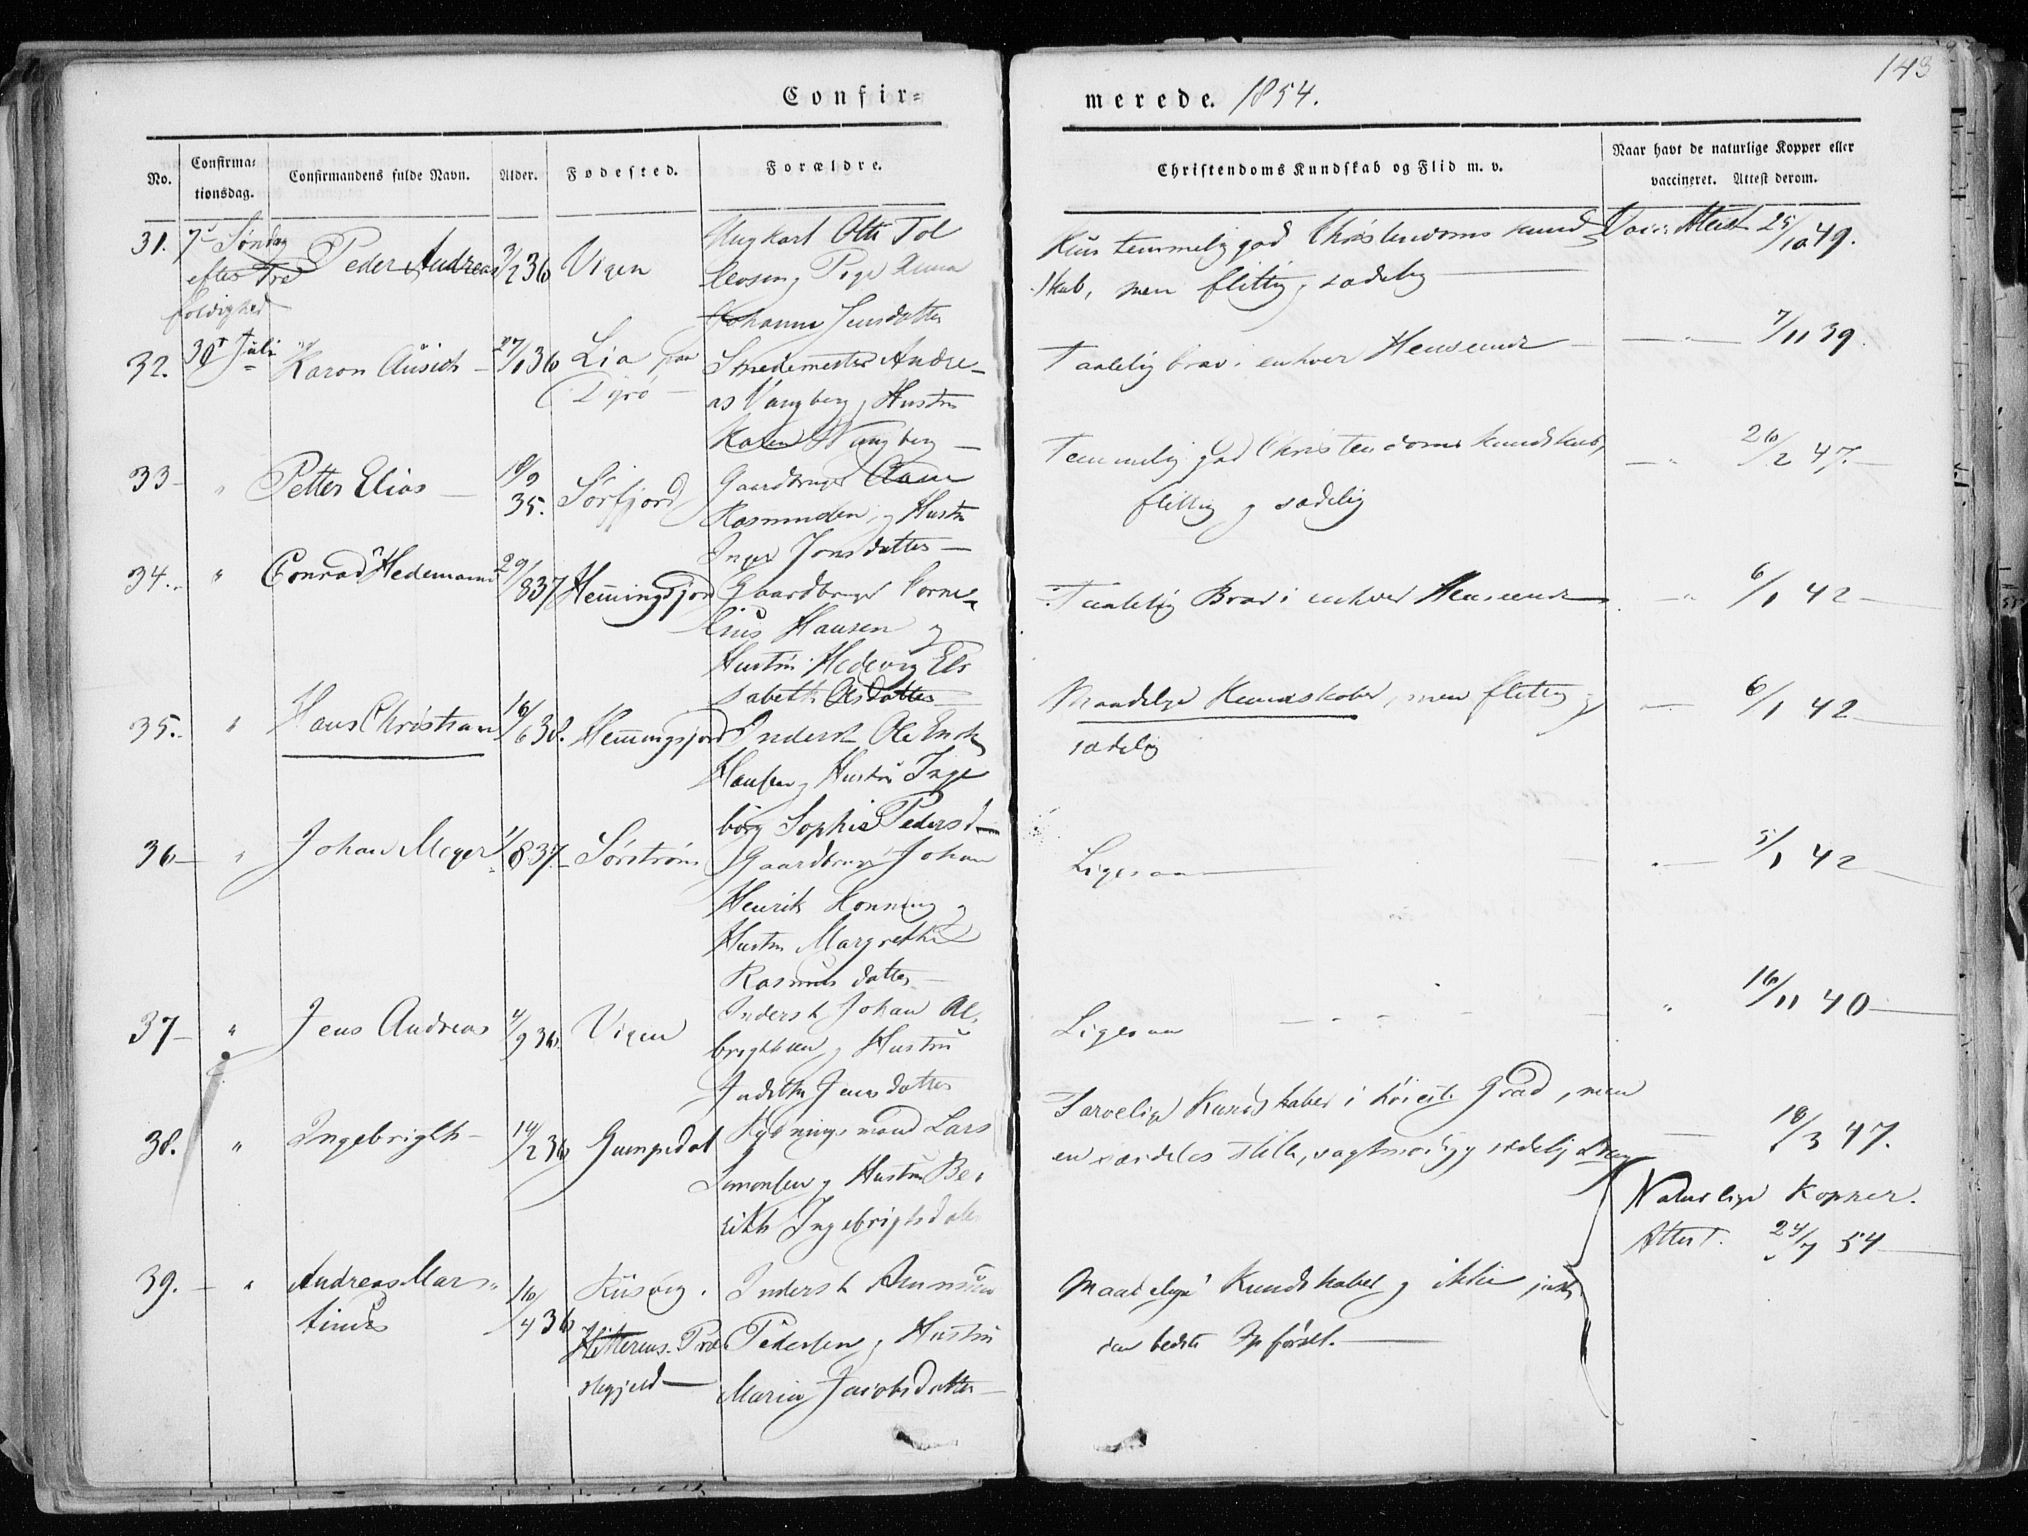 143
Confir=
merede. 1854.
No.
Confirma=
tionsdag.
Confirmandens fulde Navn.
Alder.
Fødested.
Forældre.
Christendoms Kundskab og Flid m. v.
Naar havt de naturlige Kopper eller
vaccineret. Attest derom.
31. 7de Søndag
efter Tre
foldighed
Peder Andreas
3/2 36
Vigen
Ungkarl Otte Tol
og Pige Anna
Johanna Jensdatter
temmelig god Christendomskund
skab, men flittig, sædelig
Vacc. Attest 25/10 49.
32. 30t Juli
Karen
27/1 36
Lia paa
Dyrø
Smedemester Andre
as Wangberg, Hustru
Karen Wangberg
Taalelig brav i enhver Henseende
7/11 39.
33 "
Petter Elias
18/9
35.
Sørfjord
Gaardbruger
Rasmussen og Hustru
Inger Jonsdatter
Temmelig god Christendomskundskab,
flittig og sædelig
26/2 47.
34. "
Conrad Hedemann
29/8 37
Hemingsfjord
Gaardbruger Corne
lius Hansen og
Hustru Hedevig Els
sabeth Olsdatter
Taalelig Brav i enhver Henseende
6/1 42
35. "
Hans Christian
16/6 38.
Hemingsfjord
Inderst Ole Enok
Hansen og Hustru Inge
borg Sophia Pedersd
Maadelige Kundskaber, men flittig og
sædelig
6/1 42
36 "
Johan Meyer
1/8 37.
Sørstrøm
Gaardbruger Johan
Henrik Konning og
Hustru Margrethe
Rasmusdatter
Ligesaa
5/1 42
37 "
Jens Andreas
4/9 36.
Vigen
Inderst Johan Al
brigtsen og Hustru
Judith Jensdatter
Ligesaa
" 16/11 40
38. "
Ingebrigth
14/2 36
Gumpedal
Rydningsmand Lars
Simonsen og Hustru Be
rith Ingebrigtsdatter
Tarvelige Kundskaber i høieste Grad, men
en særdeles stille, sagtmodig og sædelig Dreng
18/3 47.
39. "
Andreas Mar
tinus
16/4 36
Kusvig.
Hitterøens Præ
stegjeld
Inderst
Pedersen og Hustru
Maria Jacobsdatter
Maadelige Kundskaber og ikke just
den bedste Opførsel.
Naturlige Kopper.
Attest. 24/7 54